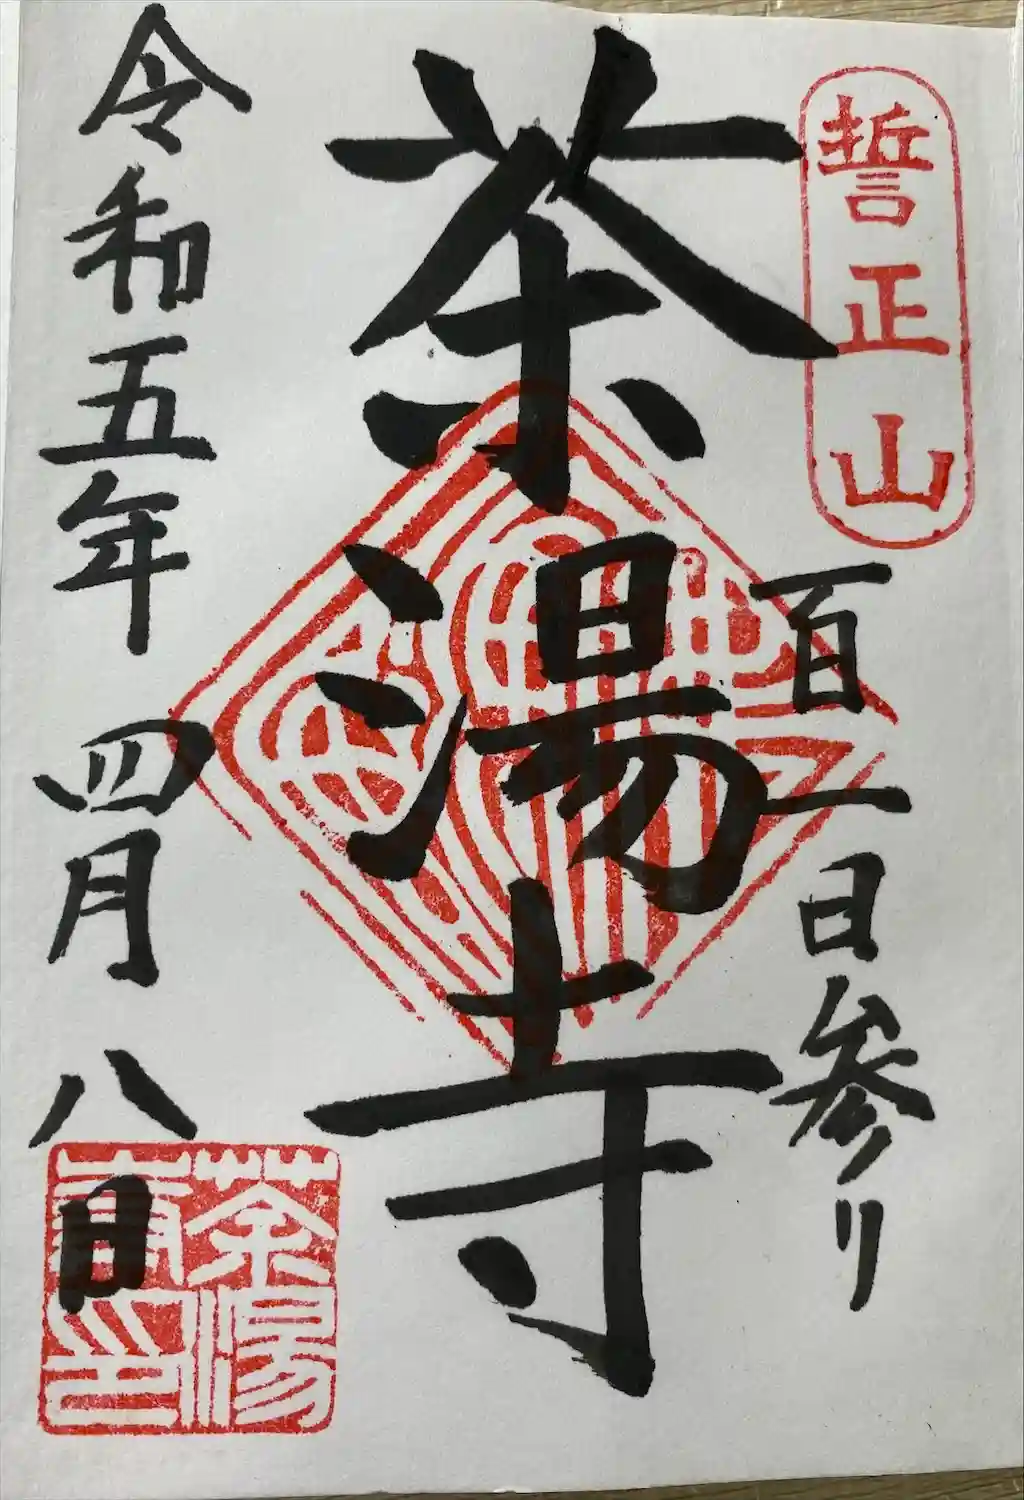 誓正山
百一日参り
茶湯寺
令和五年四月八日
茶湯寺印